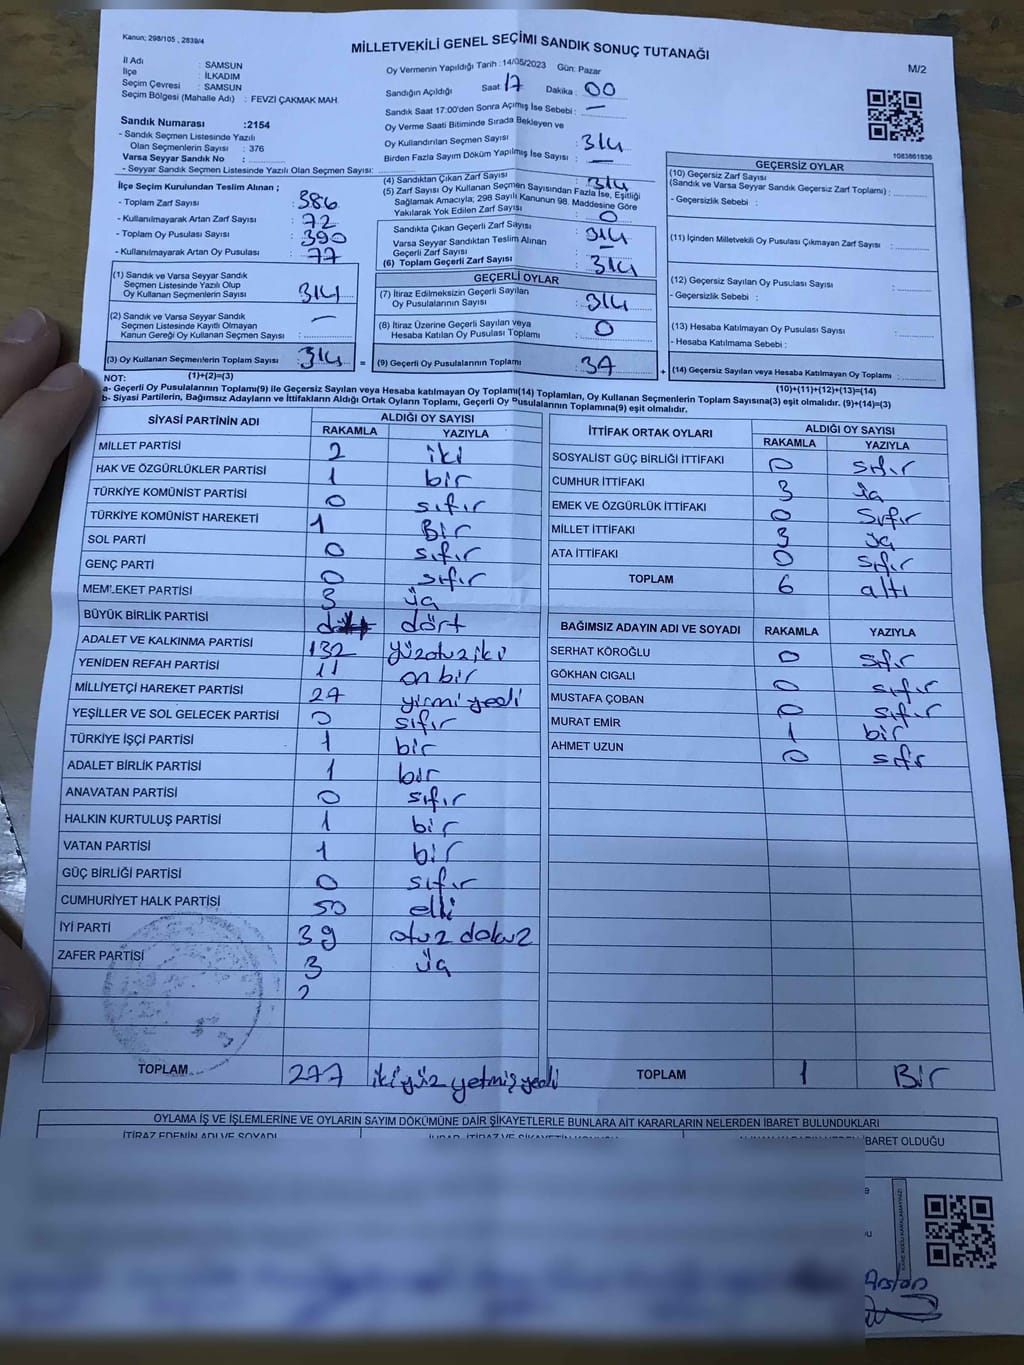 Kanun; 298/105 , 2839/4
MİLLETVEKİLİ GENEL SEÇİMİ SANDIK SONUÇ TUTANAĞI
M/2
İl Adı : SAMSUN
İlçe : İLKADIM
Seçim Çevresi : SAMSUN
Seçim Bölgesi (Mahalle Adı) : FEVZİ ÇAKMAK MAH.
Sandık Numarası :2154
- Sandık Seçmen Listesinde Yazılı
Olan Seçmenlerin Sayısı : 376
Varsa Seyyar Sandık No :
- Seyyar Sandık Seçmen Listesinde Yazılı Olan Seçmen Sayısı:
Oy Vermenin Yapıldığı Tarih : 14/05/2023 Gün: Pazar
Sandığın Açıldığı Saat : 17 Dakika : 00
Sandık Saat 17:00'den Sonra Açımış İse Sebebi : —
Oy Verme Saati Bitiminde Sırada Bekleyen ve
Oy Kullandırılan Seçmen Sayısı : 314
Birden Fazla Sayım Döküm Yapılmış İse Sayısı : —
1083861836
İlçe Seçim Kurulundan Teslim Alınan ;
- Toplam Zarf Sayısı : 386
- Kullanılmayarak Artan Zarf Sayısı : 72
- Toplam Oy Pusulası Sayısı : 390
- Kullanılmayarak Artan Oy Pusulası : 77
(1) Sandık ve Varsa Seyyar Sandık
Seçmen Listesinde Yazılı Olup
Oy Kullanan Seçmenlerin Sayısı : 314
(2) Sandık ve Varsa Seyyar Sandık
Seçmen Listesinde Kayıtlı Olmayan
Kanun Gereği Oy Kullanan Seçmen Sayısı : —
(3) Oy Kullanan Seçmenlerin Toplam Sayısı : 314
(1)+(2)=(3)
(4) Sandıktan Çıkan Zarf Sayısı : 314
(5) Zarf Sayısı Oy Kullanan Seçmen Sayısından Fazla İse, Eşitliği
Sağlamak Amacıyla; 298 Sayılı Kanunun 98. Maddesine Göre
Yakılarak Yok Edilen Zarf Sayısı : 0
Sandıkta Çıkan Geçerli Zarf Sayısı : 314
Varsa Seyyar Sandıktan Teslim Alınan
Geçerli Zarf Sayısı : —
(6) Toplam Geçerli Zarf Sayısı : 314
GEÇERLİ OYLAR
(7) İtiraz Edilmeksizin Geçerli Sayılan
Oy Pusulalarının Sayısı : 314
(8) İtiraz Üzerine Geçerli Sayılan veya
Hesaba Katılan Oy Pusulası Toplamı : 0
= (9) Geçerli Oy Pusulalarının Toplamı :
GEÇERSİZ OYLAR
(10) Geçersiz Zarf Sayısı
(Sandık ve Varsa Seyyar Sandık Geçersiz Zarf Toplamı) :
- Geçersizlik Sebebi :
(11) İçinden Milletvekili Oy Pusulası Çıkmayan Zarf Sayısı :
(12) Geçersiz Sayılan Oy Pusulası Sayısı :
- Geçersizlik Sebebi :
(13) Hesaba Katılmayan Oy Pusulası Sayısı :
- Hesaba Katılmama Sebebi :
+ (14) Geçersiz Sayılan veya Hesaba Katılmayan Oy Pusulası Toplamı :
(10)+(11)+(12)+(13)=(14)
NOT:
a- Geçerli Oy Pusulaları Toplamı(9) ile Geçersiz Sayılan veya Hesaba katılmayan Oy Toplamı(14) Toplamları, Oy Kullanan Seçmenlerin Toplam Sayısına(3) eşit olmalıdır. (9)+(14)=(3)
b- Siyasi Partilerin, Bağımsız Adayların ve İttifakların Aldığı Ortak Oyların Toplamı, Geçerli Oy Pusulalarının Toplamına(9) eşit olmalıdır.
SİYASİ PARTİNİN ADI ALDIĞI OY SAYISI
RAKAMLA YAZIYLA
MİLLET PARTİSİ 2 iki
HAK VE ÖZGÜRLÜKLER PARTİSİ 1 bir
TÜRKİYE KOMÜNİST PARTİSİ 0 sıfır
TÜRKİYE KOMÜNİST HAREKETİ 1 Bir
SOL PARTİ 0 sıfır
GENÇ PARTİ 0 sıfır
MEMLEKET PARTİSİ 3 üç
BÜYÜK BİRLİK PARTİSİ dört
ADALET VE KALKINMA PARTİSİ 132 yüzotuziki
YENİDEN REFAH PARTİSİ 11 on bir
MİLLİYETÇİ HAREKET PARTİSİ 27 yirmi yedi
YEŞİLLER VE SOL GELECEK PARTİSİ 0 sıfır
TÜRKİYE İŞÇİ PARTİSİ 1 bir
ADALET BİRLİK PARTİSİ 1 bir
ANAVATAN PARTİSİ 0 sıfır
HALKIN KURTULUŞ PARTİSİ 1 bir
VATAN PARTİSİ 1 bir
GÜÇ BİRLİĞİ PARTİSİ 0 sıfır
CUMHURİYET HALK PARTİSİ 50 elli
İYİ PARTİ 39 otuz dokuz
ZAFER PARTİSİ 3 üç
TOPLAM 277 ikiyüz yetmiş yedi
İTTİFAK ORTAK OYLARI ALDIĞI OY SAYISI
RAKAMLA YAZIYLA
SOSYALİST GÜÇ BİRLİĞİ İTTİFAKI 0 sıfır
CUMHUR İTTİFAKI 3 üç
EMEK VE ÖZGÜRLÜK İTTİFAKI 0 sıfır
MİLLET İTTİFAKI 3 üç
ATA İTTİFAKI 0 sıfır
TOPLAM 6 altı
BAĞIMSIZ ADAYIN ADI VE SOYADI RAKAMLA YAZIYLA
SERHAT KÖROĞLU 0 sıfır
GÖKHAN CIGALI 0 sıfır
MUSTAFA ÇOBAN 0 sıfır
MURAT EMİR 1 bir
AHMET UZUN 0 sıfır
TOPLAM 1 Bir
OYLAMA İŞ VE İŞLEMLERİNE VE OYLARIN SAYIM DÖKÜMÜNE DAİR ŞİKAYETLERLE BUNLARA AİT KARARLARIN NELERDEN İBARET BULUNDUKLARI
İTİRAZ EDENİN ADI VE SOYADI
İBARET OLDUĞU
Arslan